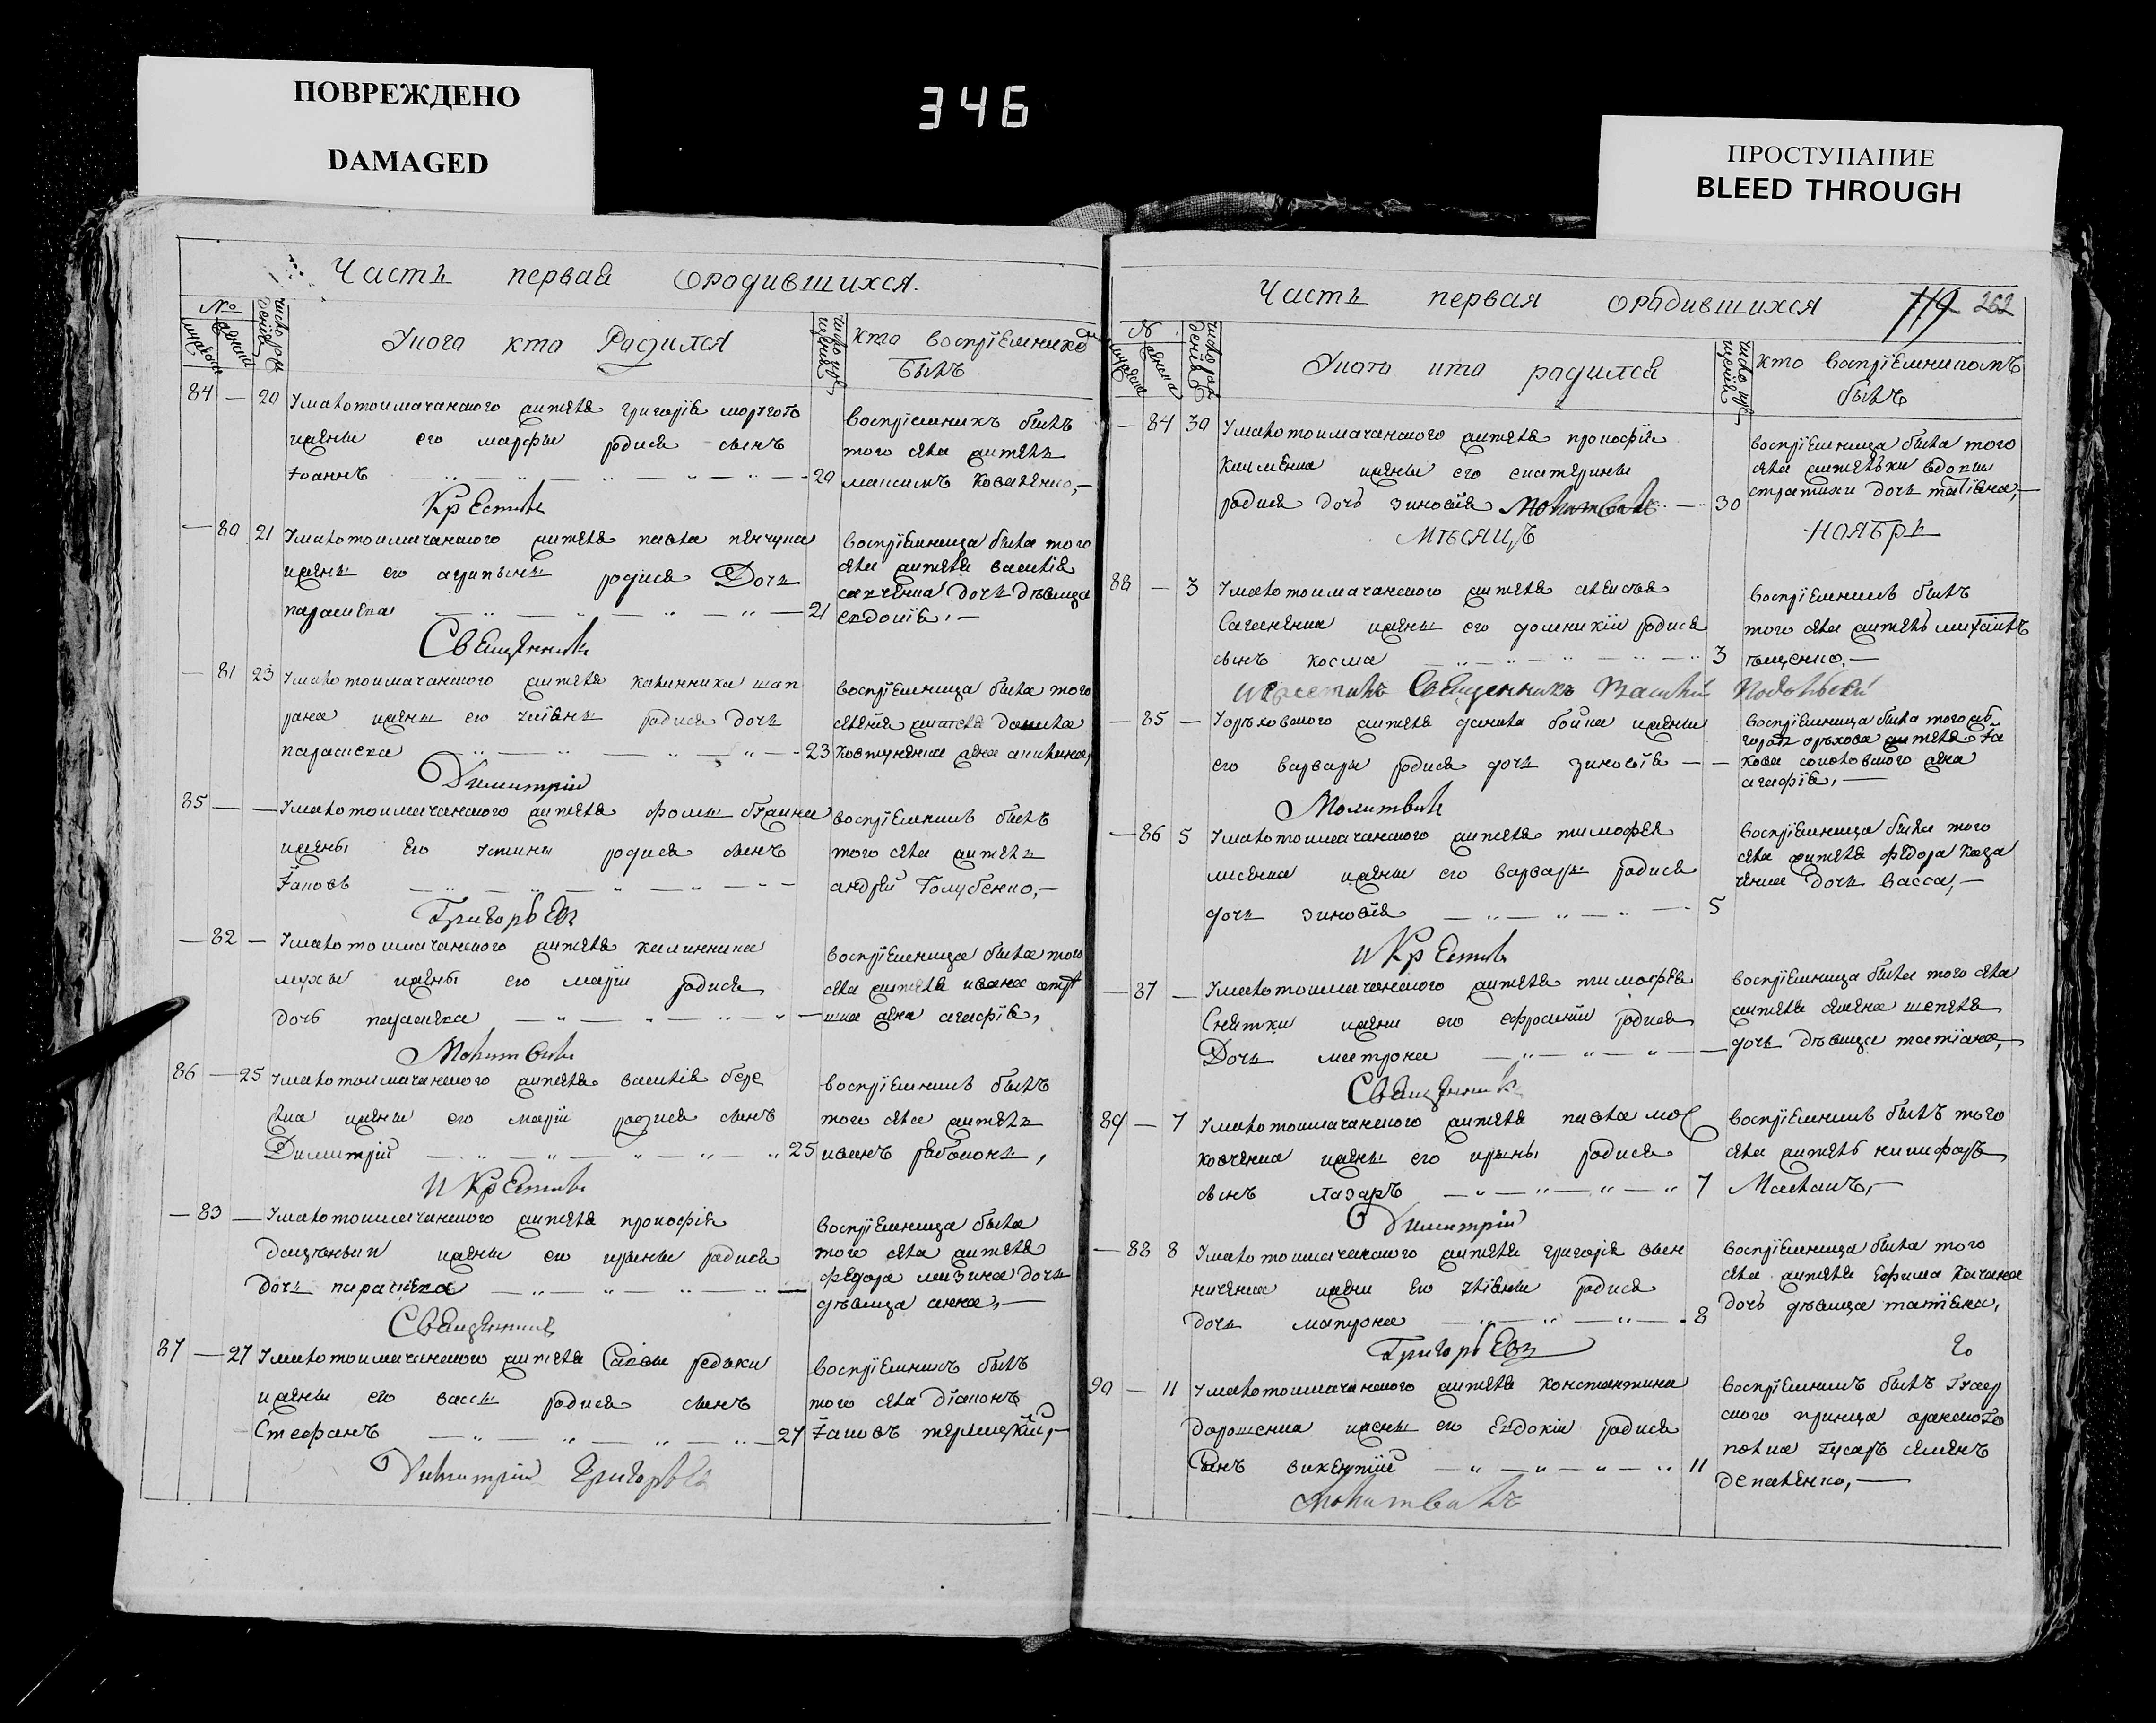 ПОВРЕЖДЕНО
DAMAGED
346
ПРОСТУПАНИЕ
BLEED THROUGH
Часть первая ородившихся.
№
Уного кто Родился
кто воспріемнико
былъ
84 — 20 Умалотокмачанского жителя григорія
жены его марфы родися сынъ
Іоаннъ — 20
воспріемникъ былъ
того села житель
максимъ коваленко,—
Крестилъ
— 80 21 Умалотокмачанского жителя павла
жены его родися Дочь
параскева — 21
воспріемница была того
села жителя василія
дочь дѣвица
евдокія,—
Священникъ
— 81 23 Умалотокмачанского жителя калинника шап
рана жены его родися дочь
параскева — 23
воспріемница была того
селенія жителя данила
жена
Димитрій
85 — — Умалотокмачанского жителя фомы
жены его устины родися сынъ
Іаковъ
воспріемникъ былъ
того села житель
андрей Голубенко,—
Григорьевъ
— 82 — Умалотокмачанского жителя калинника
мухы жены его маріи родися
дочь параскева
воспріемница была того
села жителя ивана
жена агафія,
Молитвилъ
86 — 25 Умалотокмачанского жителя василія бере
жены его маріи родися сынъ
Димитрій — 25
воспріемникъ былъ
того села житель
иванъ рябоконь,
и Крестилъ
— 83 — Умалотокмачанского жителя прокофія
жены его ирины родися
дочь параскева
воспріемница была
того села жителя
федора мизина дочь
дѣвица анна,—
Священникъ
87 — 27 Умалотокмачанского жителя Савы редьки
жены его вассы родися сынъ
Стефанъ — 27
воспріемникъ былъ
того села діаконъ
Іаковъ
Димитрій Григорьевъ
Часть первая орадившихся
119 262
№
Укого кто родился
кто воспріемникомъ
былъ
— 84 30 Умалотокмачанского жителя прокофія
клименка жены его екатерины
родися дочь зиновія Молитвилъ — 30
воспріемница была того
села жителька вдовы
дочь татіяна,—
МѢСЯЦЪ НОЯБРЬ
88 — 3 Умалотокмачанского жителя алексѣя
жены его домникіи родися
сынъ косма — 3
воспріемникъ былъ
того села житель михаилъ
и крестилъ Священникъ Василій Подольский
— 85 — Уорѣховского жителя данила бойка жены
его варвары родися дочь зиновія —
воспріемница была того
города орѣхова жителя Іа
кова соколовского жена
агафія,—
Молитвилъ
— 86 5 Умалотокмачанского жителя тимофея
лисенка жены его варвары родися
дочь зиновія — 5
воспріемница была того
села жителя федора каза
ченка дочь васса,—
и Крестилъ
— 87 — Умалотокмачанского жителя тимофея
Снятки жены его ефросиніи родися
Дочь матрона
воспріемница была того села
жителя семена шепеля
дочь дѣвица татіана,
Священникъ
89 — 7 Умалотокмачанского жителя павла мос
ковченка жены его ирины родися
сынъ лазарь — 7
воспріемникъ былъ того
села житель никифоръ
Маслакъ,—
Димитрій
— 88 8 Умалотокмачанского жителя григорія вин
ниченка жены его родися
дочь матрона — 8
воспріемница была того
села жителя Ефима качана
дочь дѣвица татіяна,
Григорьевъ
90 — 11 Умалотокмачанского жителя константина
дорошенка жены его Евдокіи родися
сынъ викентій — 11
воспріемникъ былъ Гусар
ского принца оранского
полка гусаръ семенъ
депаленко,—
молитвилъ